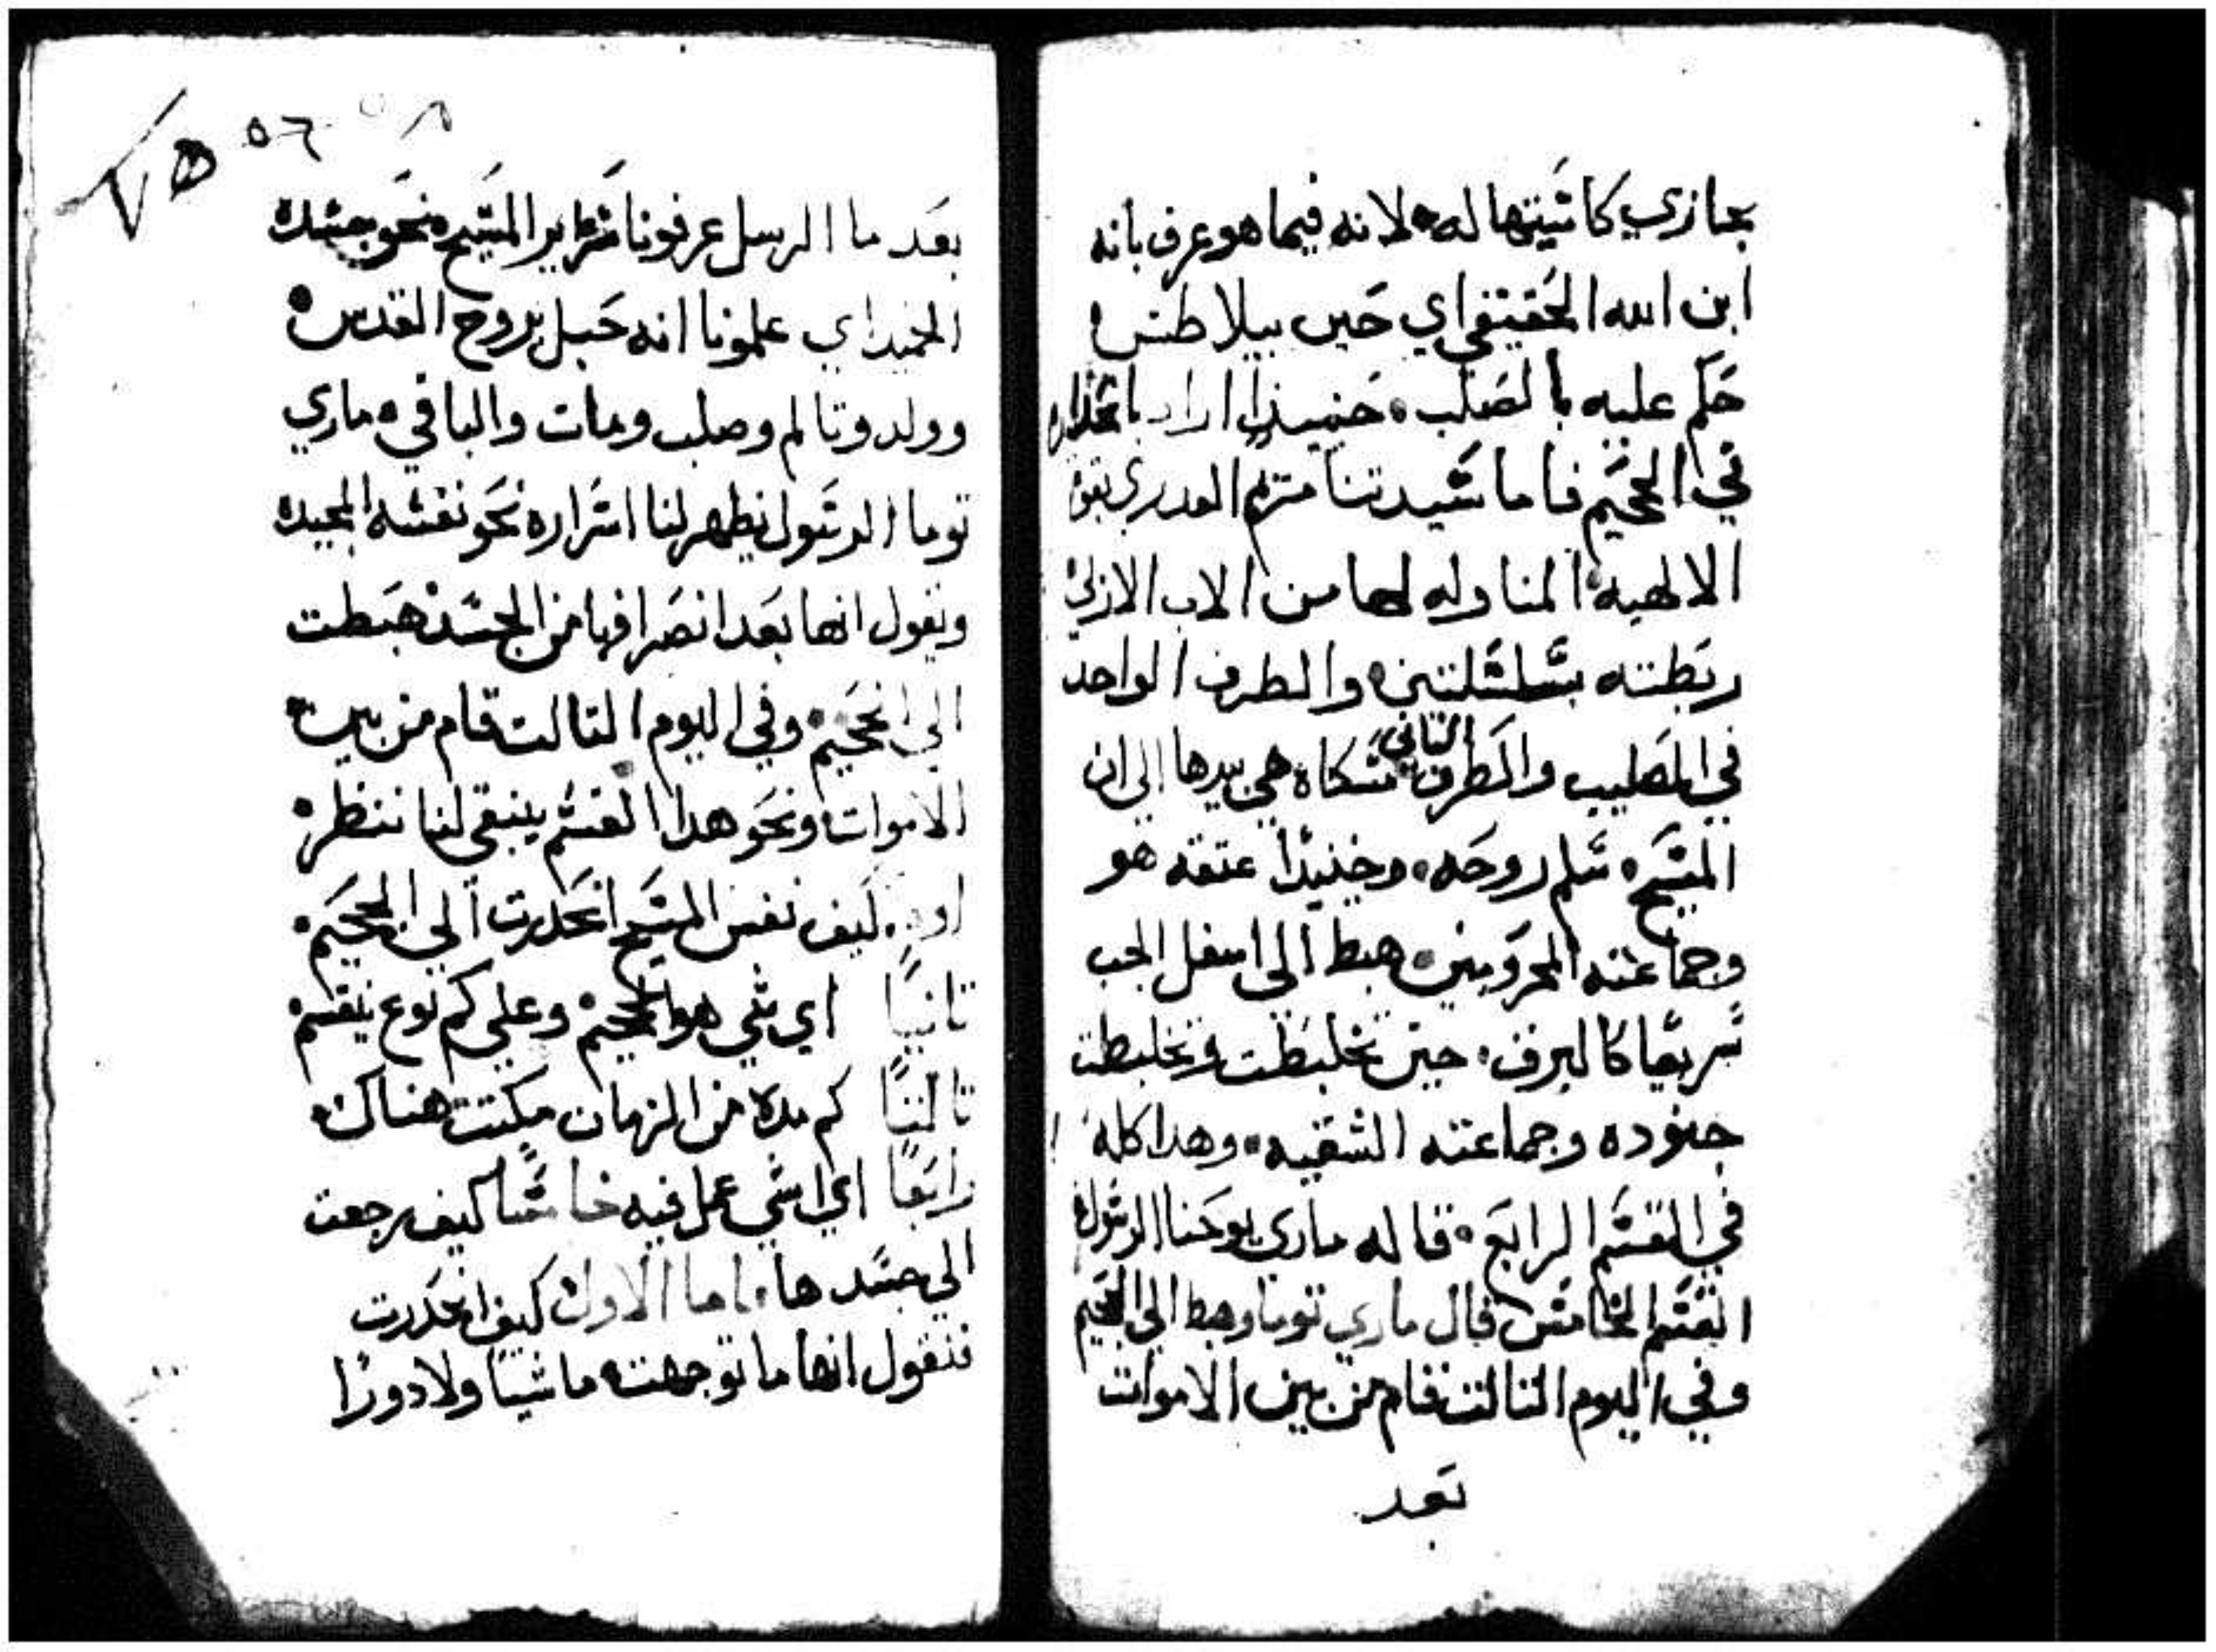 بجازي كاشيتها له لانه فيما هو عرف بانه
ابن الله الحقيقي اي حين بيلاطس
حكم عليه بالصلب حنيذا اراد
في الححيم فاما سيدتنا مريم
الالهيه المناوله لها من الاب الازلي
ربطته بسلسلتين والطرف الواحد
في الصليب والطرف الثاني مسكاه هي بيدها الي ان
المسيح سلم روحه وحنيذا عتقه هو
وجماعته المحرومين هبط الي اسفل الجب
سريعا كالبرق حين تخلبطت وتخلبطت
جنوده وجماعته الشقيه وهدا كله
في القسم الرابع قاله ماري يوحنا الرسول
القسم الخامس قال ماري توما وهبط الي الجحيم
وفي اليوم التالت قام من بين الاموات
بعد
٥٦
بعد ما الرسل عرفونا سراير المسيح نحو جسده
المجيد اي علمونا انه حبل بروح القدس
وولد وتالم وصلب ومات والباقي ماري
توما الرسول يظهر لنا اسراره نحو نفسه المجيده
ويقول انها بعد انصرافها من الجسد هبطت
الي الححيم وفي اليوم التالت قام من بين
الاموات ونحو هدا القسم ينبغي لنا ننظر
اولا كيف نفس المسيح انحدرت الي الجحيم
تانيا اي شي هو الجحيم وعلي كم نوع ينقسم
تالتا كم مده من الزمان مكتت هناك
رابعا اي اشي عمل فيه خامسا كيف رجعت
الي جسدها اما الاول كيف انحدرت
فنقول انها ما توجهت ماشيا ولا دورا